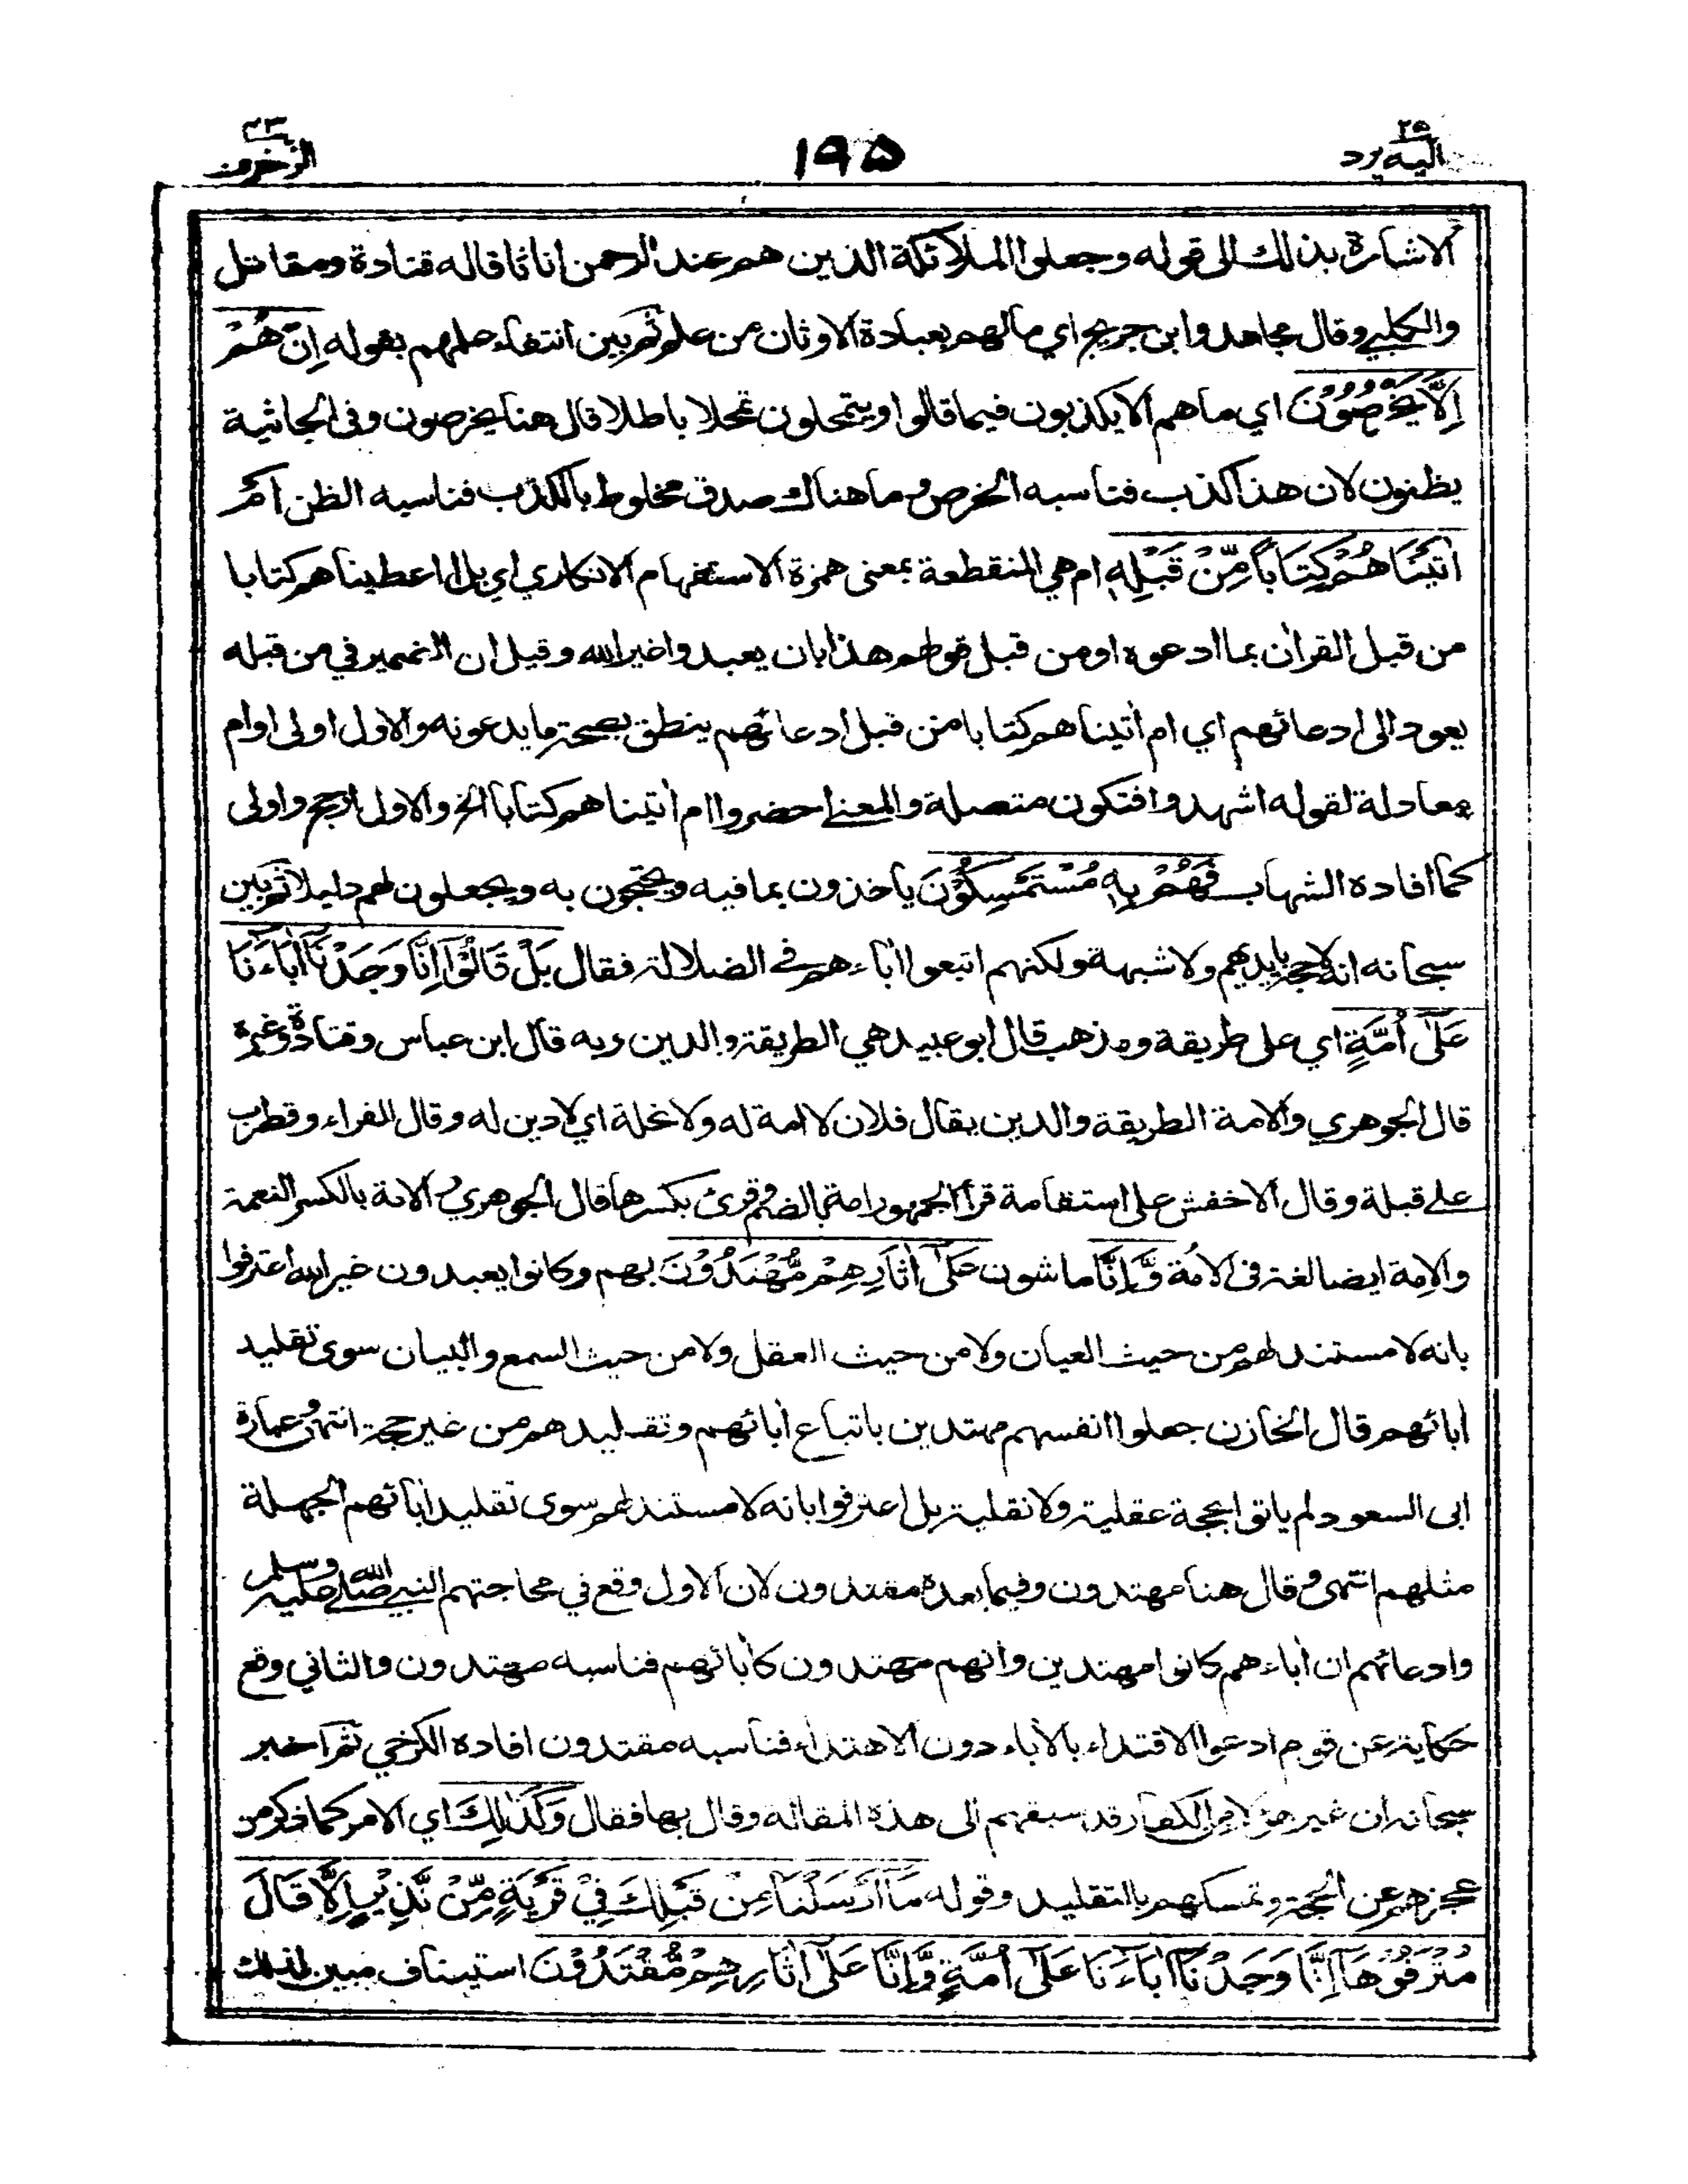 ٢٥
اليه يرد
١٩٥
٤٣
الزخرف
الاشارة بذلك الى قوله وجعلوا الملائكة الذين هم عند الرحمن اناثا قاله قتادة ومقاتل
والكلبي وقال مجاهد وابن جريج اي مالهم بعبادة الاوثان من علم ثم بين انتفاء علمهم بقوله اِنْ هُمْ
اِلَّا يَخْرُصُوْنَ اي ما هم الا يكذبون فيما قالوا ويتمحلون تمحلا باطلا قال هنا يخرصون وفي الجاثية
يظنون لان هذا كذب فناسبه الخرص وما هناك صدق مخلوط بالكذب فناسبه الظن اَمْ
اٰتَيْنَاهُمْ كِتَابًا مِّنْ قَبْلِهٖ ام هي المنقطعة بمعنى همزة الاستفهام الانكاري اي بل ااعطيناهم كتابا
من قبل القراٰن بما ادعوه او من قبل قولهم هذا بان يعبدوا غير الله وقيل ان الضمير في من قبله
يعود الى ادعائهم اي ام اٰتيناهم كتابا من قبل ادعائهم ينطق بصحة ما يدعونه والاول اولى او ام
معادلة لقوله اشهدوا فتكون متصلة والمعنى احضروا ام اٰتيناهم كتابا الخ والاول ارجح واولى
كما افاده الشهاب فَهُمْ بِهٖ مُسْتَمْسِكُوْنَ ياخذون بما فيه ويحتجون به ويجعلون لهم دليلا ثم بين
سبحانه انه لا حجة بايديهم ولا شبهة ولكنهم اتبعوا اٰباءهم في الضلالة فقال بَلْ قَالُوْٓا اِنَّا وَجَدْنَآ اٰبَآءَنَا
عَلٰٓى اُمَّةٍ اي على طريقة ومذهب قال ابو عبيد هي الطريقة والدين وبه قال ابن عباس وقتادة وغيره
قال الجوهري والامة الطريقة والدين يقال فلان لا امة له ولا نحلة اي لا دين له وقال الفراء وقطرب
على قبلة وقال الاخفش على استقامة قرأ الجمهور امة بالضم وقرئ بكسرها قال الجوهري والامة بالكسر النعمة
والاِمة ايضا لغة في الاُمة وَّاِنَّا ماشون عَلٰٓى اٰثَارِهِمْ مُّهْتَدُوْنَ بهم وكانوا يعبدون غير الله اعترفوا
بانه لا مستند لهم من حيث العيان ولا من حيث العقل ولا من حيث السمع والبيان سوى تقليد
اٰبائهم قال الخازن جعلوا انفسهم مهتدين باتباع اٰبائهم وتقليدهم من غير حجة انتهى وعبارة
ابي السعود لم ياتوا بحجة عقلية ولا نقلية بل اعترفوا بانه لا مستند لهم سوى تقليد اٰبائهم الجهلة
مثلهم انتهى وقال هنا مهتدون وفيما بعده مقتدون لان الاول وقع في محاجتهم النبي صلى الله عليه وسلم
وادعائهم ان اٰباءهم كانوا مهتدين وانهم مهتدون كاٰبائهم فناسبه مهتدون والثاني وقع
حكاية عن قوم ادعوا الاقتداء بالاٰباء دون الاهتداء فناسبه مقتدون افاده الكرخي ثم اخبر
سبحانه ان غير هؤلاء من الكفار قد سبقهم الى هذه المقالة وقال بها فقال وَكَذٰلِكَ اي الامر كما ذكر من
عجزهم عن الحجة وتمسكهم بالتقليد وقوله مَآ اَرْسَلْنَا مِنْ قَبْلِكَ فِيْ قَرْيَةٍ مِّنْ نَّذِيْرٍ اِلَّا قَالَ
مُتْرَفُوْهَآ اِنَّا وَجَدْنَآ اٰبَآءَنَا عَلٰٓى اُمَّةٍ وَّاِنَّا عَلٰٓى اٰثَارِهِمْ مُّقْتَدُوْنَ استيناف مبين لذلك